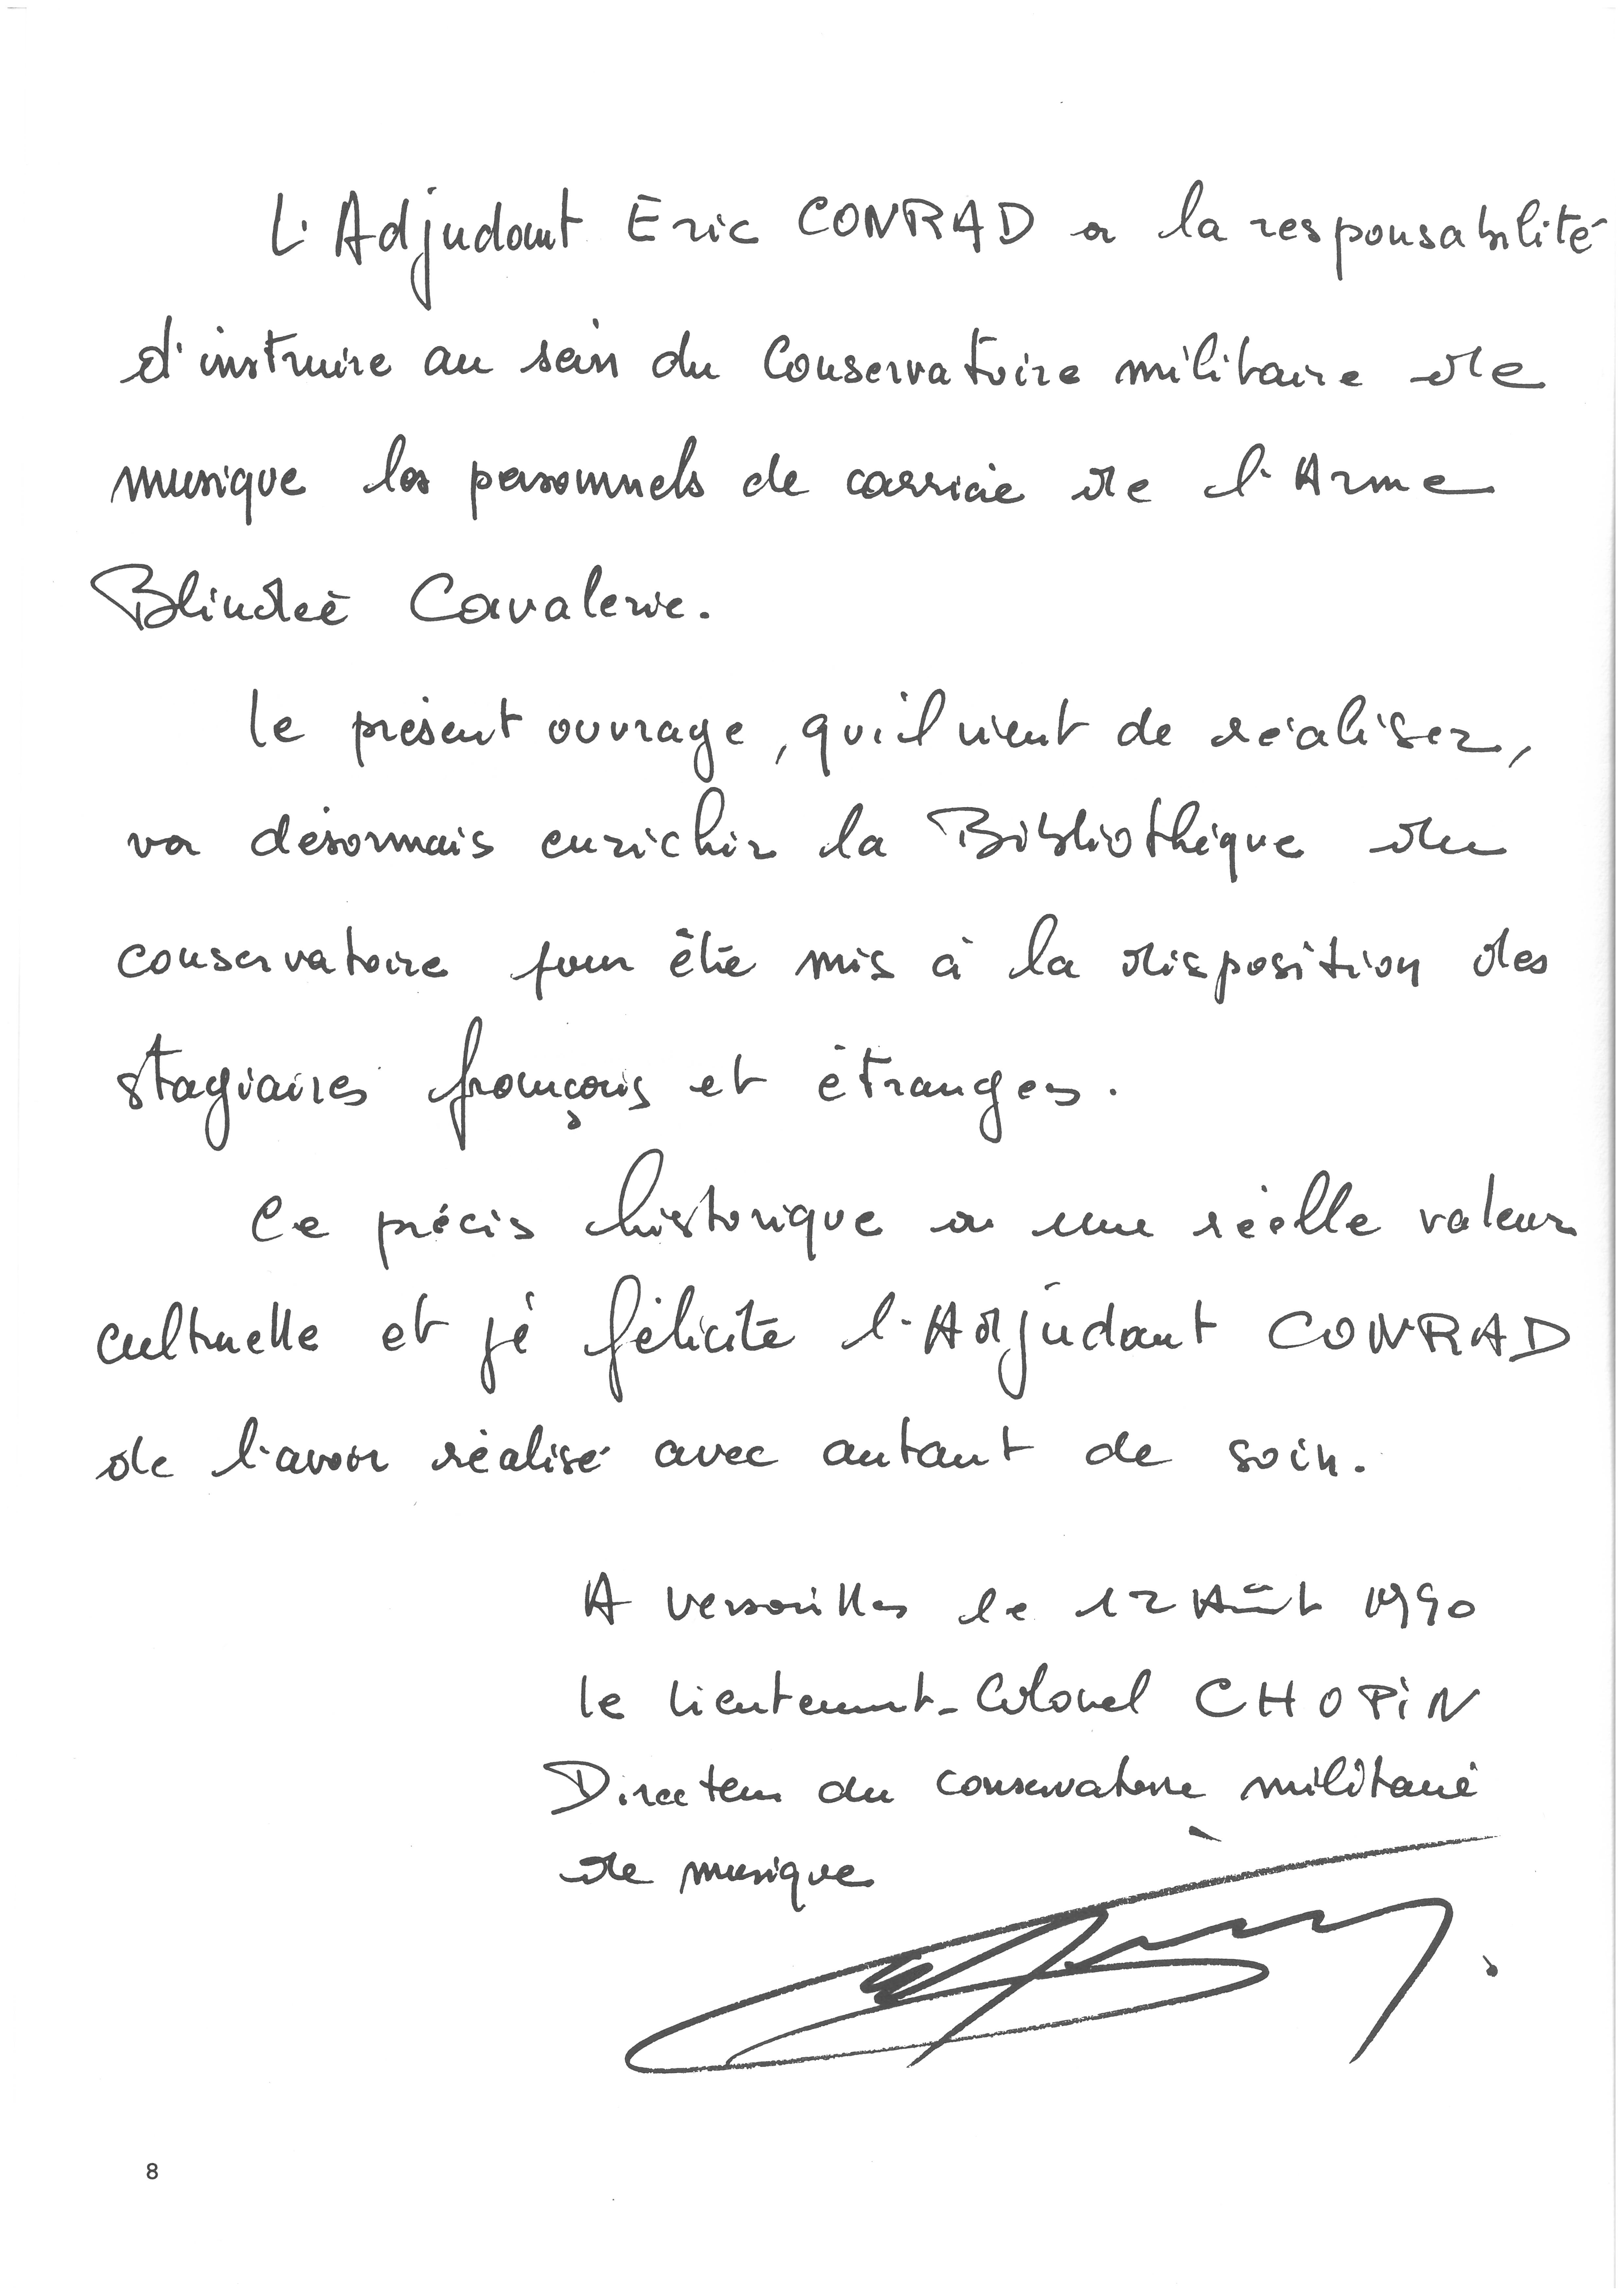 L'Adjudant Eric CONRAD a la responsabilité
d'instruire au sein du Conservatoire militaire de
musique les personnels de carrière de l'Arme
Blindée Cavalerie.
Le présent ouvrage, qu'il vient de réaliser,
va désormais enrichir la Bibliothèque du
conservatoire pour être mis à la disposition des
stagiaires français et étrangers.
Ce précis historique a une réelle valeur
culturelle et je félicite l'Adjudant CONRAD
de l'avoir réalisé avec autant de soin.
A Versailles le 12 Août 1990
le Lieutenant-Colonel CHOPIN
Directeur du conservatoire militaire
de musique
8